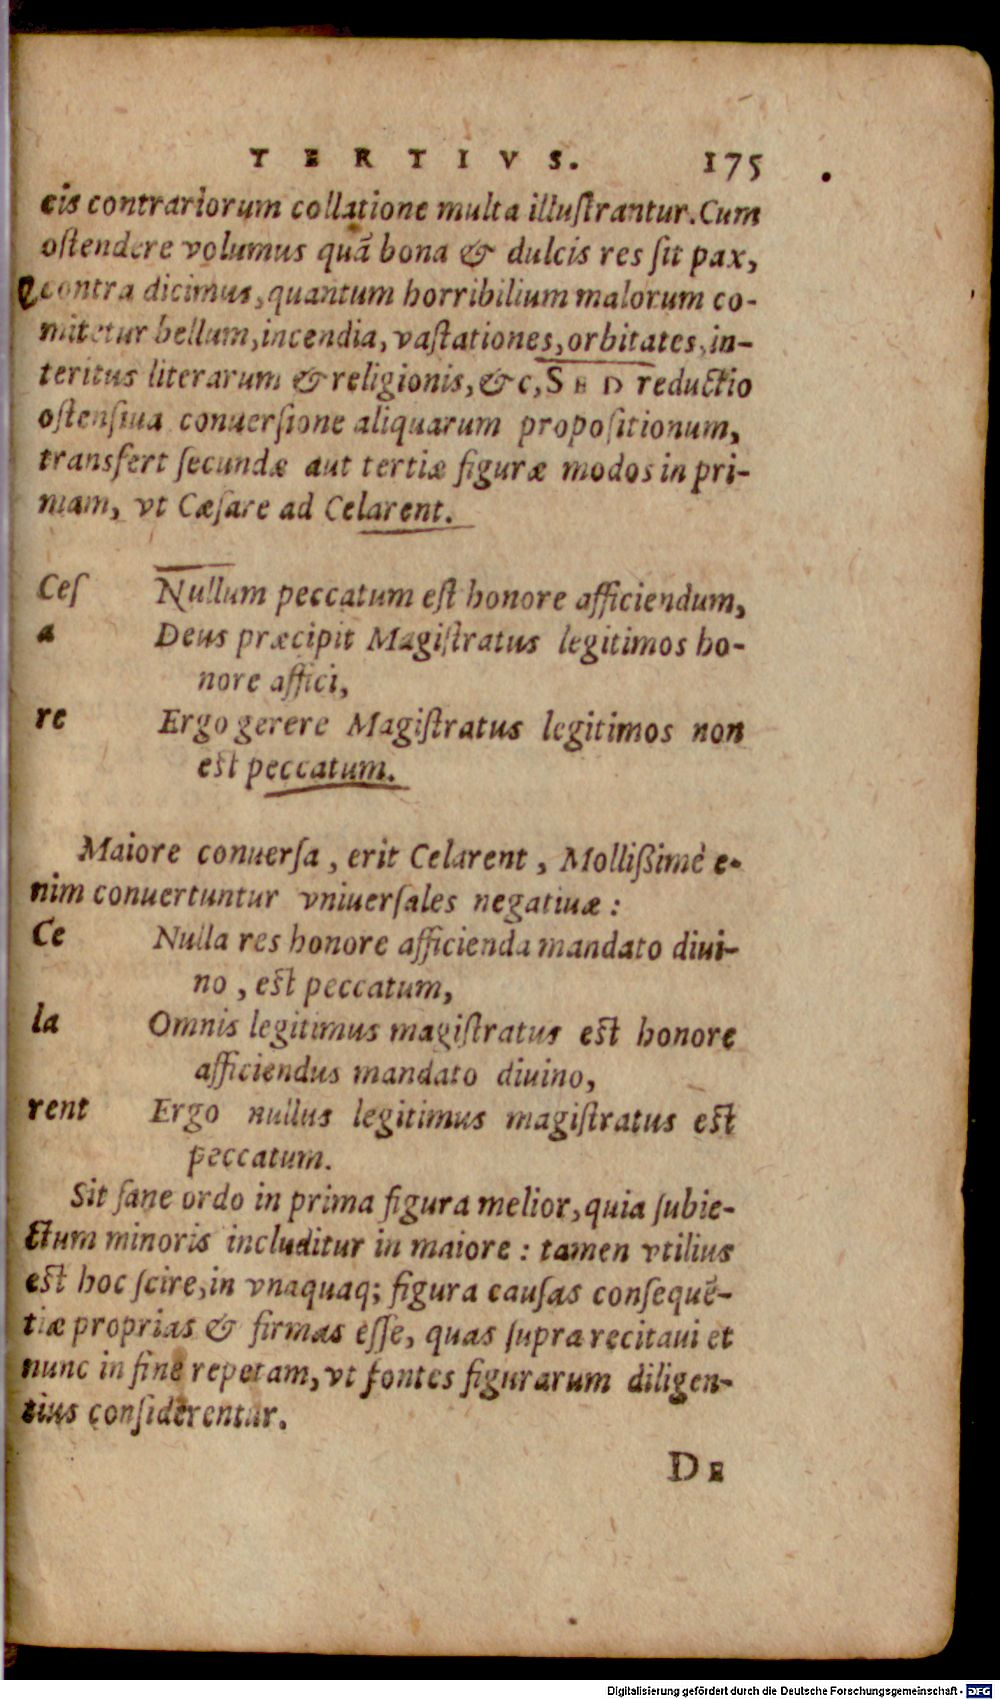 TERTIVS. 175
cis contrariorum collatione multa illuſtrantur. Cum
oſtendere volumus quā bona & dulcis res ſit pax,
contra dicimus, quantum horribilium malorum co-
mitetur bellum, incendia, vaſtationes, orbitates, in-
teritus literarum & religionis, & c, SED reductio
oſtenſiua conuerſione aliquarum propoſitionum,
transfert ſecundæ aut tertiæ figuræ modos in pri-
mam, vt Cæſare ad Celarent.
Ceſ Nullum peccatum eſt honore afficiendum,
a Deus præcipit Magiſtratus legitimos ho-
nore affici,
re Ergo gerere Magiſtratus legitimos non
eſt peccatum.
Maiore conuerſa, erit Celarent, Mollißimè e-
nim conuertuntur vniuerſales negatiuæ:
Ce Nulla res honore afficienda mandato diui-
no, eſt peccatum,
la Omnis legitimus magiſtratus eſt honore
afficiendus mandato diuino,
rent Ergo nullus legitimus magiſtratus eſt
peccatum.
Sit ſane ordo in prima figura melior, quia ſubie-
ctum minoris includitur in maiore: tamen vtilius
eſt hoc ſcire, in vnaquaq; figura cauſas conſequē-
tiæ proprias & firmas eſſe, quas ſupra recitaui et
nunc in fine repetam, vt fontes figurarum diligen-
tius conſiderentur.
DE
Digitalisierung gefördert durch die Deutsche Forschungsgemeinschaft - DFG